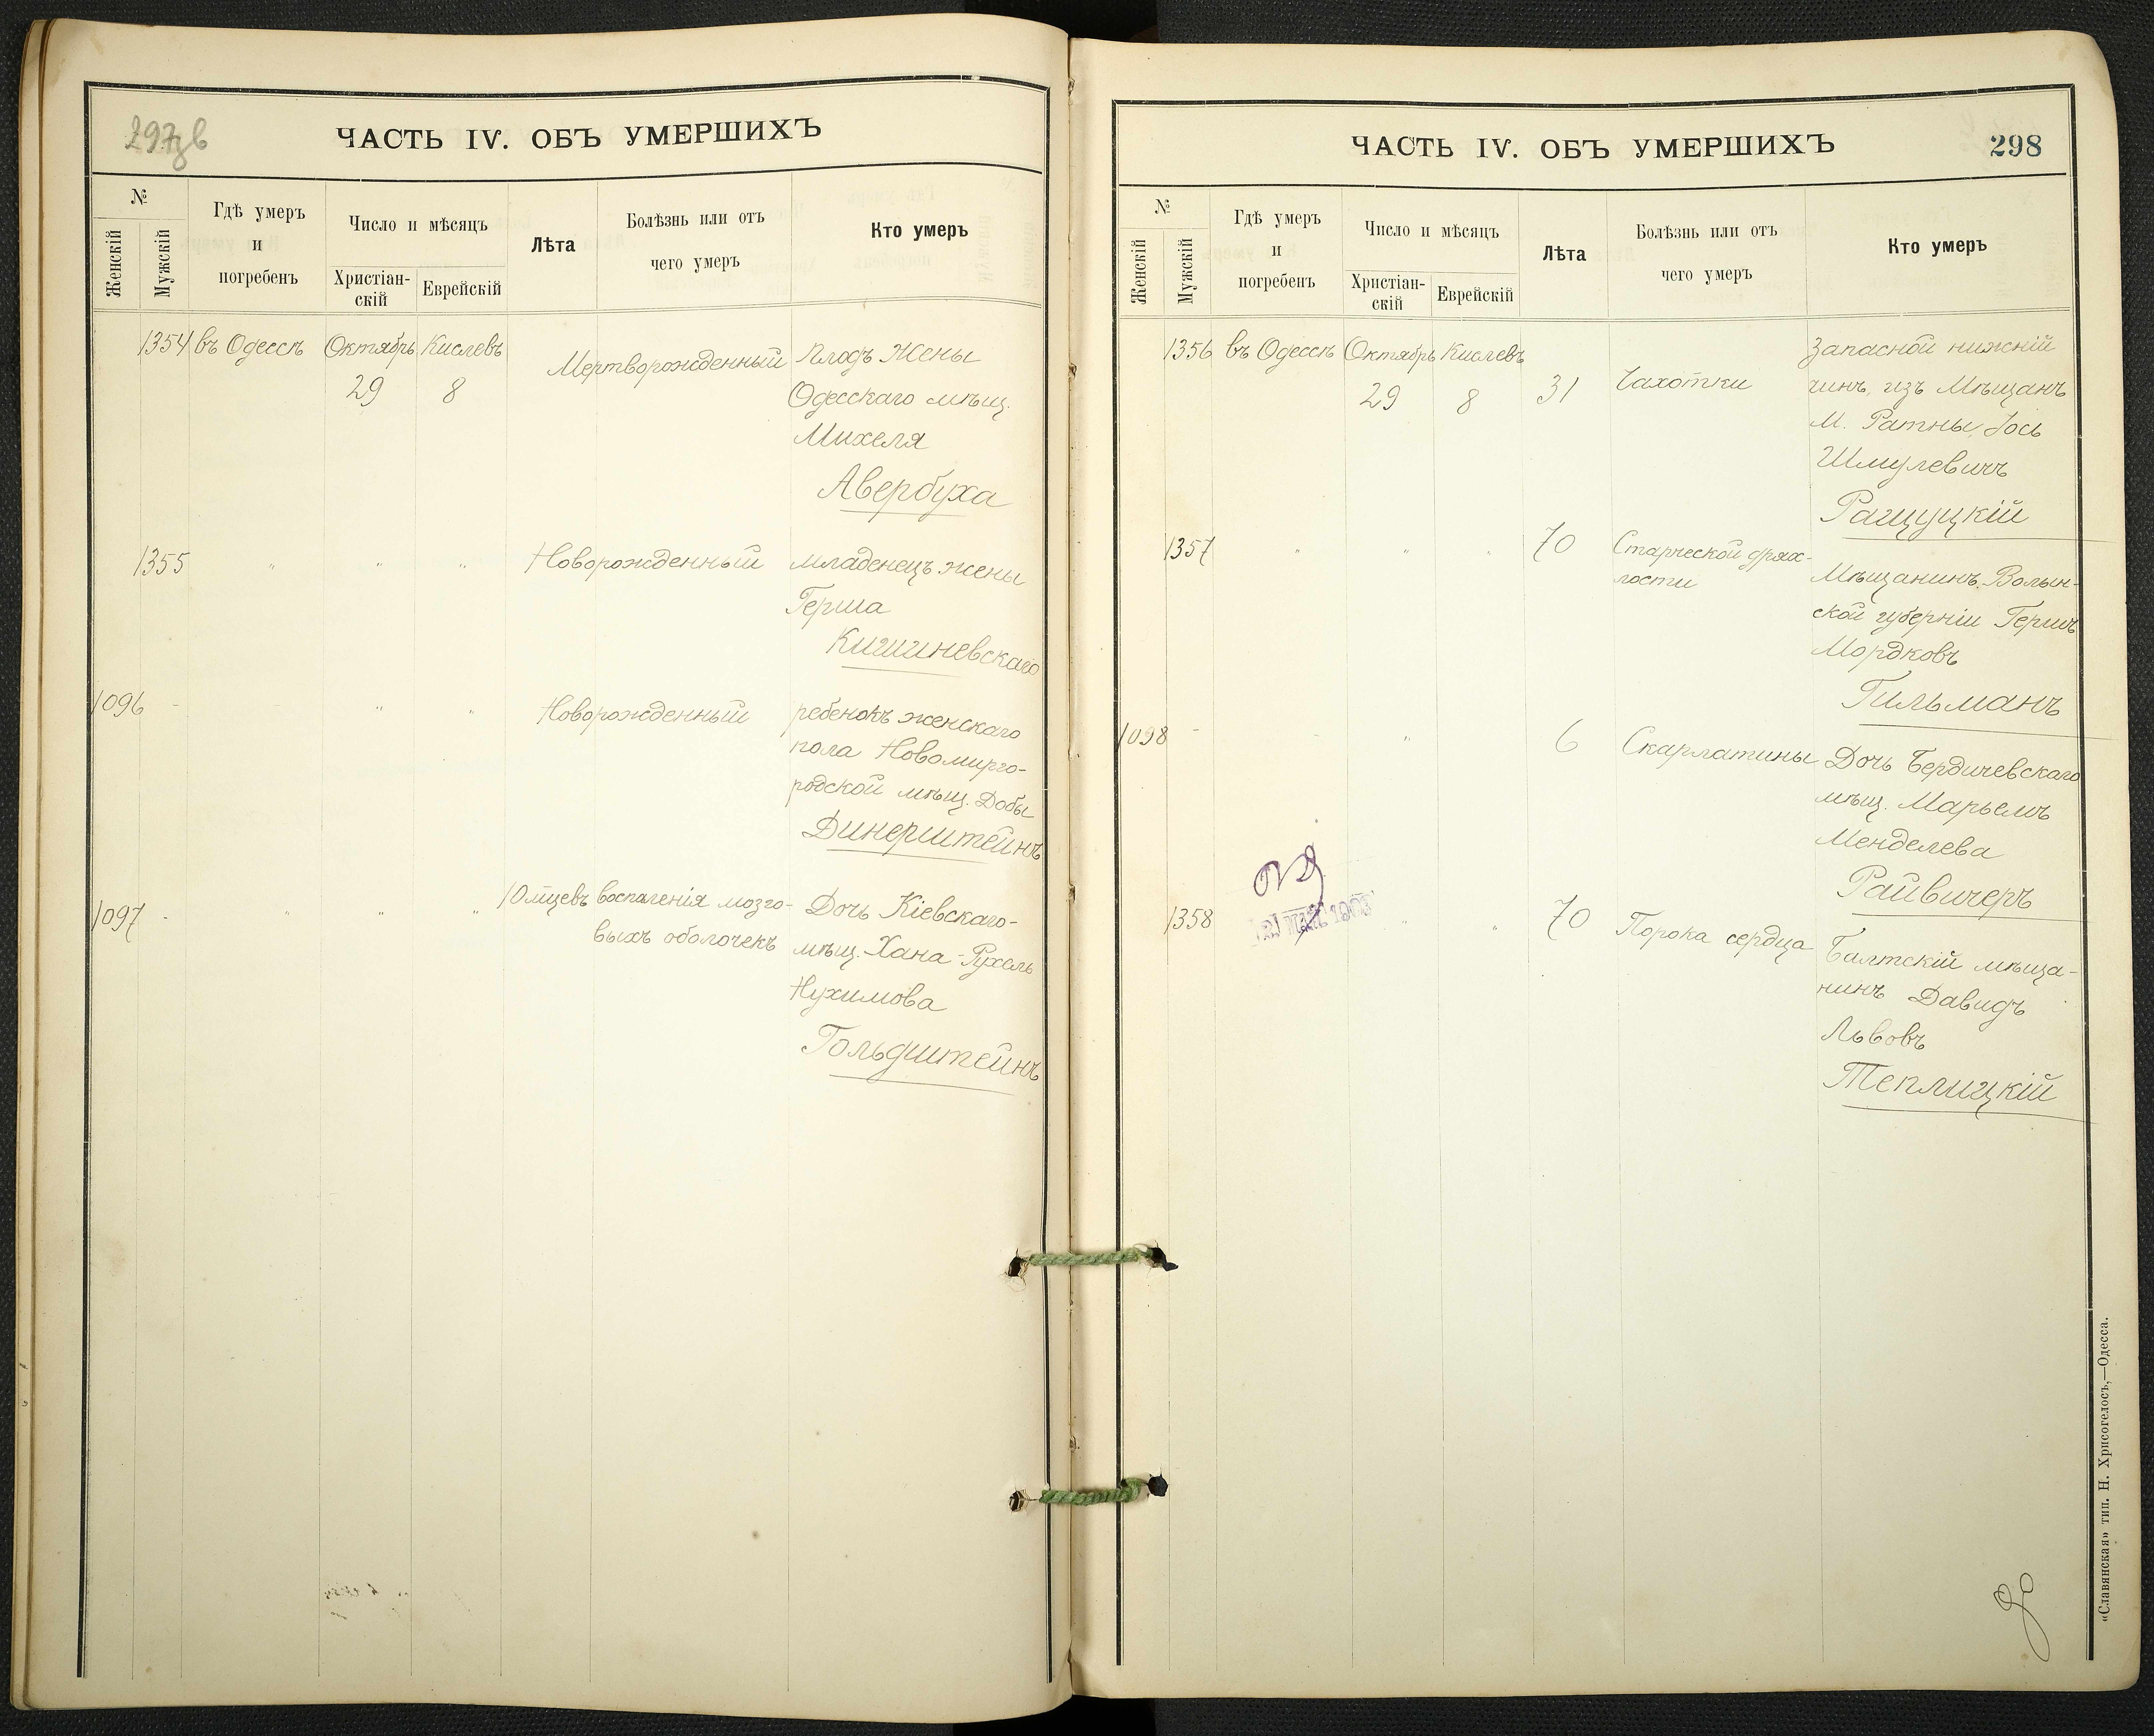 297зв
ЧАСТЬ IV. ОБЪ УМЕРШИХЪ
№
Женскій
Мужскій
Гдѣ умеръ
и
погребенъ
Число и мѣсяцъ
Христіан-
скій
Еврейскій
Лѣта
Болѣзнь или отъ
чего умеръ
Кто умеръ
1354 въ Одессѣ Октябрь Кислевъ Мертворожденный плодъ жены
29 8 Одесскаго мѣщ.
Михеля
Авербуха
1355 " " " Новорожденный младенецъ жены
Герша
Кишиневскаго
1096 - - " " Новорожденный ребенокъ женскаго
пола Новомирго-
родской мѣщ. Добы
Динерштейнъ
1097 - " " " 10 мцевъ воспаленія мозго- Дочь Кіевскаго
выхъ оболочекъ мѣщ. Хана-Рухель
Нухимова
Гольдштейнъ
ЧАСТЬ IV. ОБЪ УМЕРШИХЪ
298
№
Женскій
Мужскій
Гдѣ умеръ
и
погребенъ
Число и мѣсяцъ
Христіан-
скій
Еврейскій
Лѣта
Болѣзнь или отъ
чего умеръ
Кто умеръ
1356 въ Одессѣ Октябрь Кислевъ Запасной нижній
29 8 31 Чахотки чинъ, изъ мѣщанъ
М. Ратны, Іось
Шмулевичъ
1357 " " " 70 Старческой дрях-
лости Мѣщанинъ Волын-
ской губерніи Гершъ
Мордковъ
Гильманъ
1098 - - " 6 Скарлатины Дочь Бердичевскаго
мѣщ. Марьемъ
Менделева
Райвичеръ
1358 " " 70 Порока сердца Балтскій мѣща-
нинъ Давидъ
Львовъ
Теплицкій
«Славянская» тип. Н. Хрисогелосъ,—Одесса.